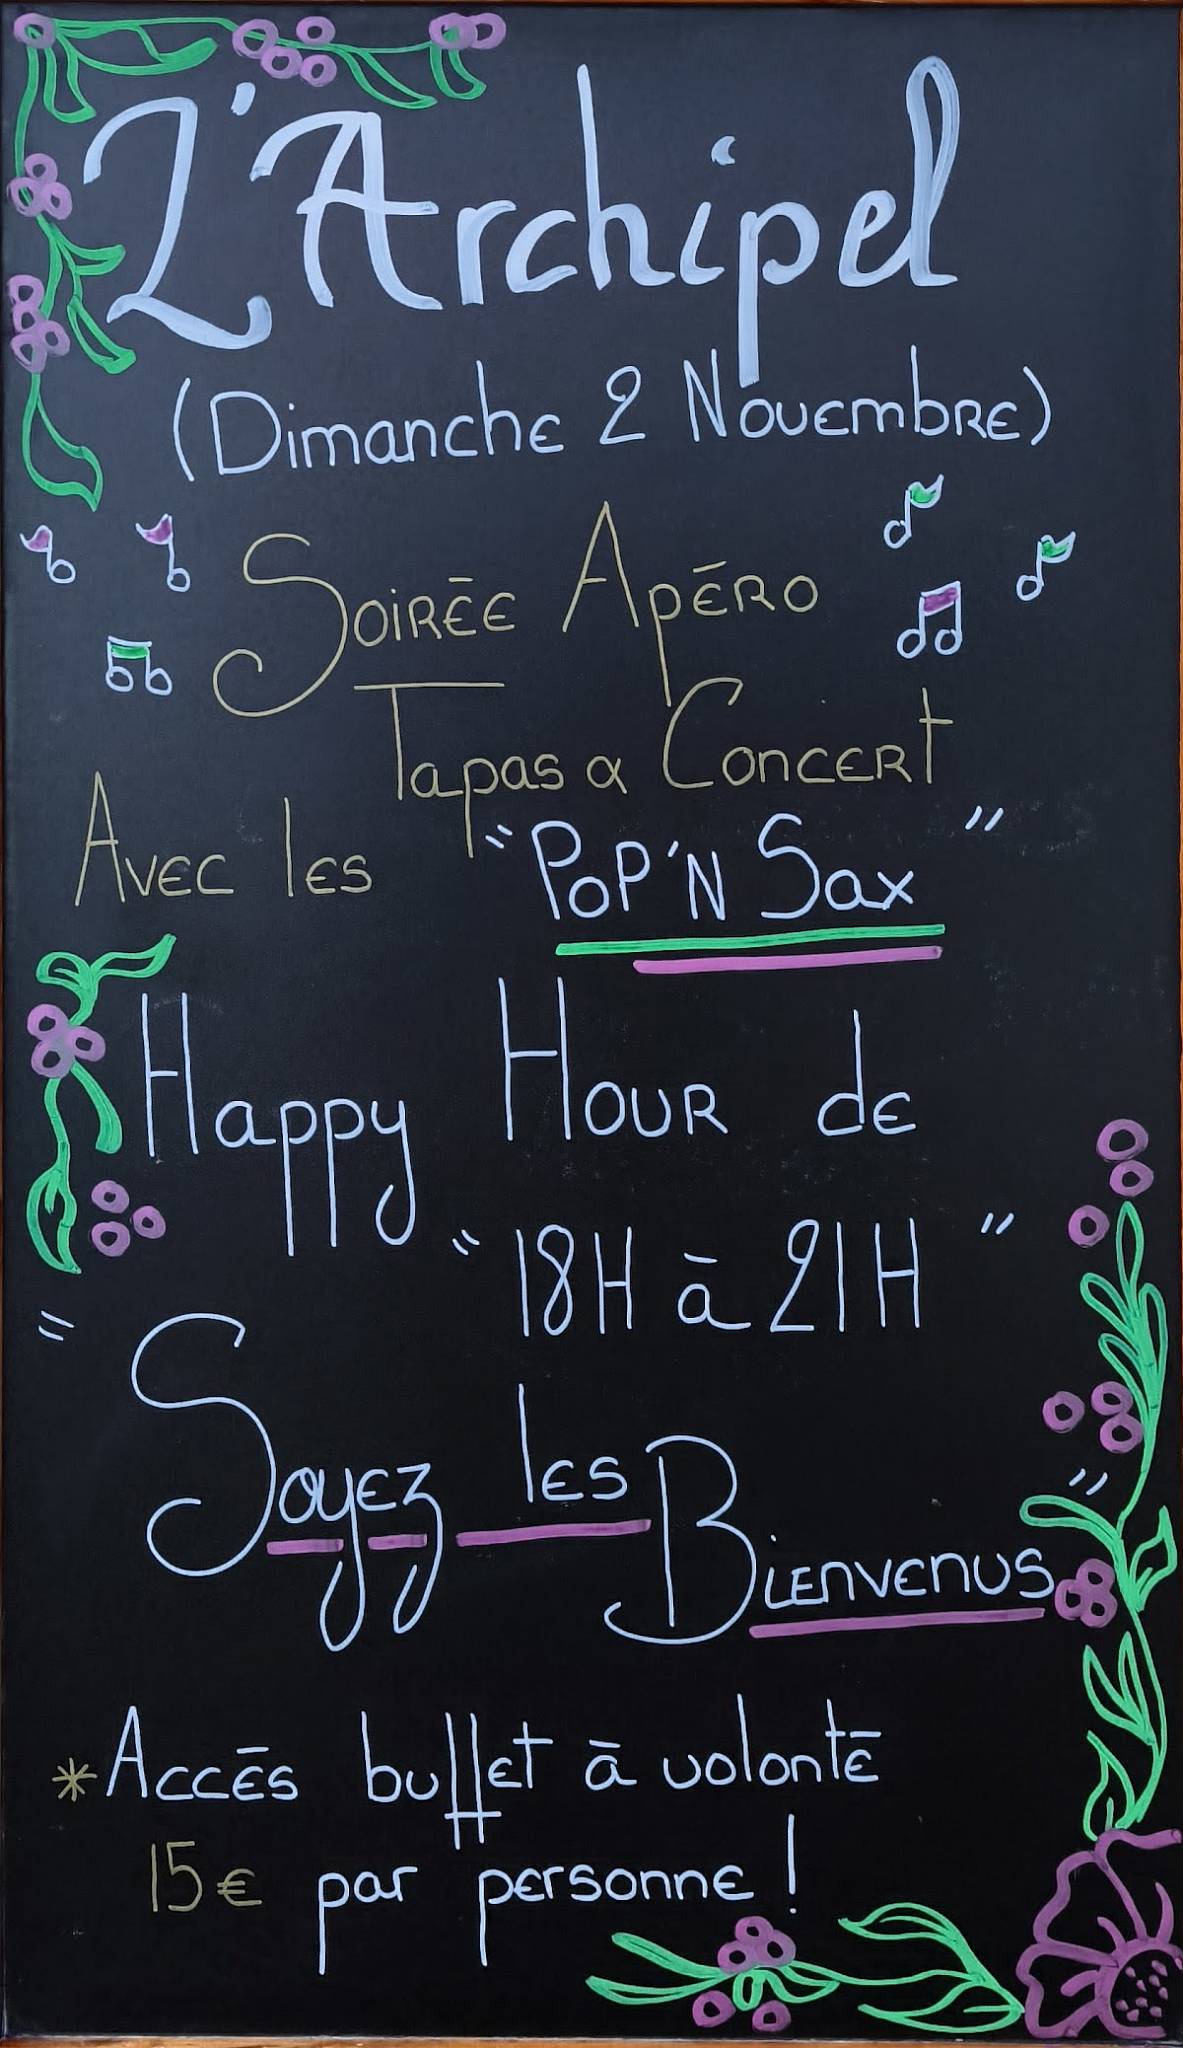 L'Archipel
(Dimanche 2 Novembre)
Soirée Apéro
Tapas & Concert
Avec les "Pop'N Sax"
Happy Hour de
"18H à 21H"
"Soyez les
Bienvenus"
*Accés buffet à volonté
15€ par personne !